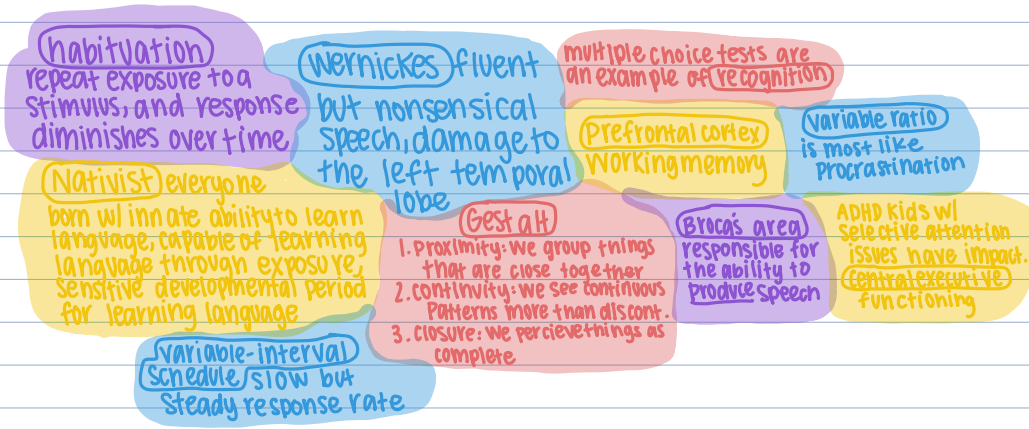 habituation
repeat exposure to a
stimulus, and response
diminishes over time
Wernickes fluent
but nonsensical
speech, damage to
the left temporal
lobe
multiple choice tests are
an example of recognition
Prefrontal cortex
working memory
variable ratio
is most like
procrastination
Nativist everyone
born w/ innate ability to learn
language, capable of learning
language through exposure,
sensitive developmental period
for learning language
Gestalt
1. Proximity: we group things
that are close together
2. continuity: we see continuous
patterns more than discont.
3. closure: we percieve things as
complete
Broca's area
responsible for
the ability to
produce speech
ADHD kids w/
selective attention
issues have impact.
central executive
functioning
variable-interval
schedule slow but
steady response rate